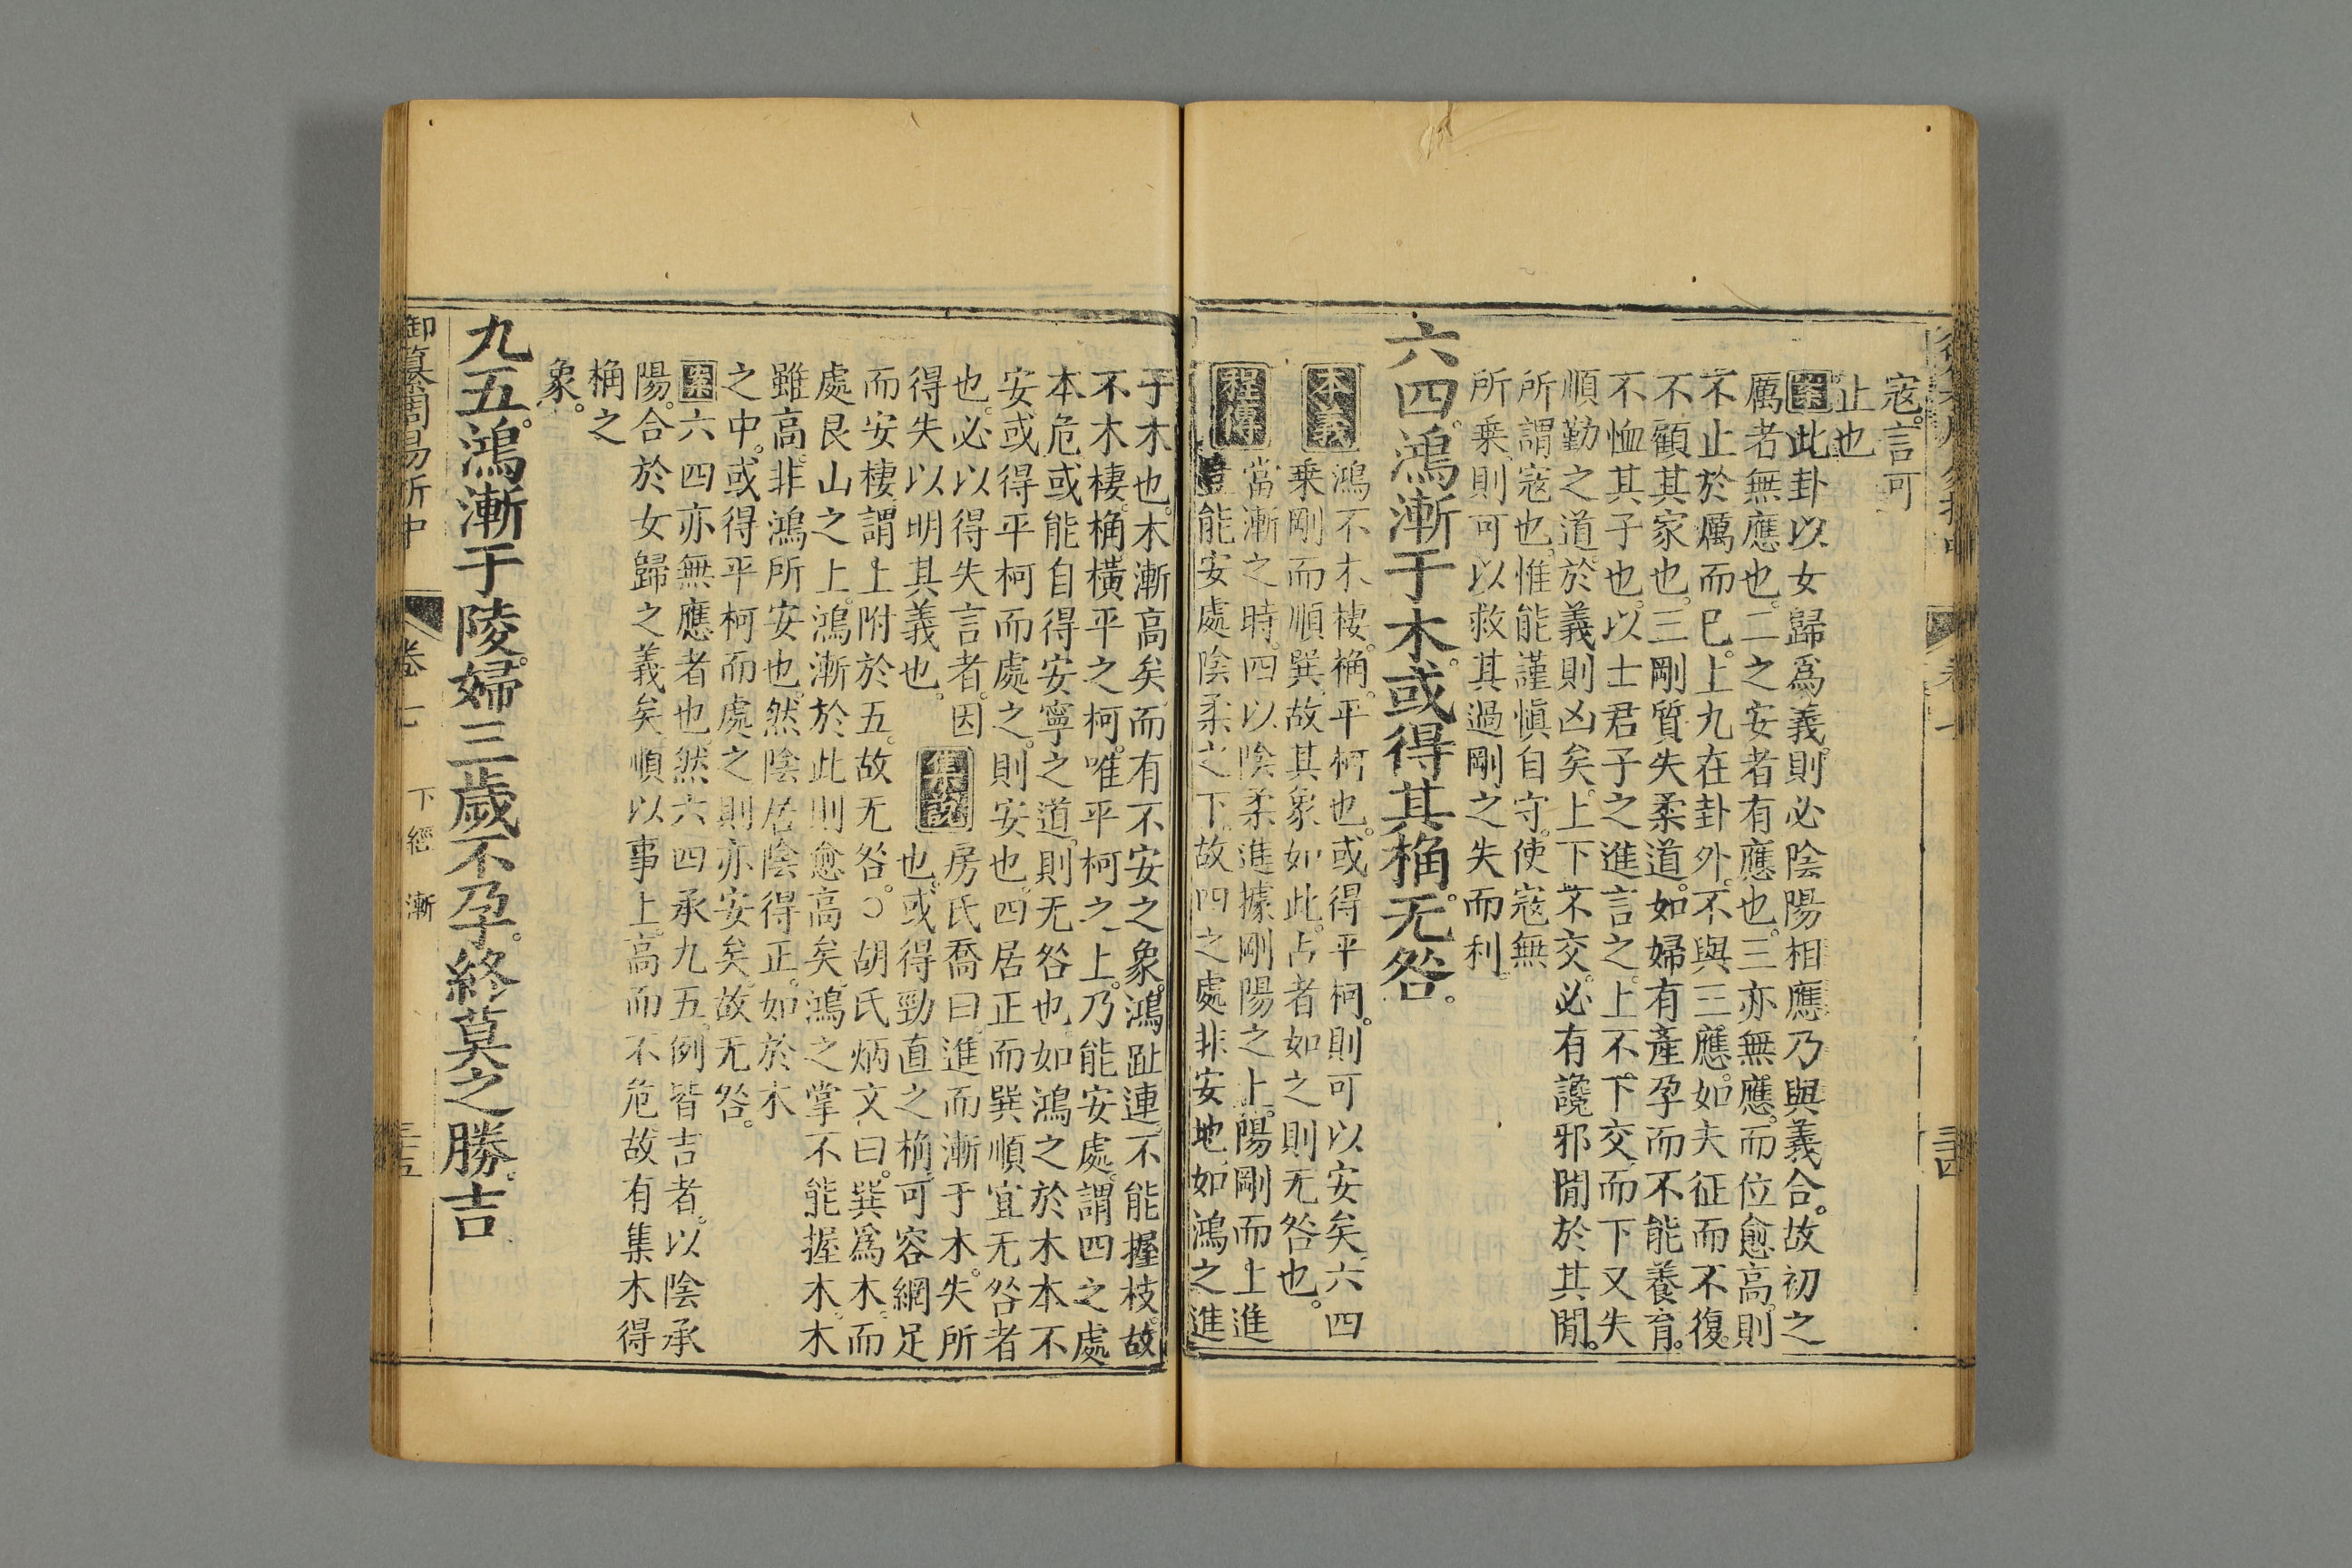 寇言可
止也
案此卦以女歸爲義則必陰陽相應乃與義合故初之
厲者無應也二之安者有應也三亦無應而位愈高則
不止於厲而已上九在卦外不與三應如夫征而不復
不顧其家也三剛質失柔道如婦有產孕而不能養育
不恤其子也以士君子之進言之上不下交而下又失
順勤之道於義則凶矣上下不交必有讒邪閒於其閒
所謂寇也惟能謹愼自守使寇無
所乗則可以救其過剛之失而利
六四鴻漸于木或得其桷无咎
本義鴻不木棲桷平柯也或得平柯則可以安矣六四
乗剛而順巽故其象如此占者如之則无咎也
程傳當漸之時四以陰柔進據剛陽之上陽剛而上進
豈能安處陰柔之下故四之處非安地如鴻之進
于木也木漸高矣而有不安之象鴻趾連不能握枝故
不木棲桷橫平之柯唯平柯之上乃能安處謂四之處
本危或能自得安寧之道則无咎也如鴻之於木本不
安或得平柯而處之則安也四居正而巽順宜无咎者
也必以得失言者因
得失以明其義也
集說房氏喬曰進而漸于木失所
也或得勁直之桷可容網足
而安棲謂上附於五故无咎○胡氏炳文曰巽爲木而
處艮山之上鴻漸於此則愈高矣鴻之掌不能握木木
雖高非鴻所安也然陰居陰得正如於木
之中或得平柯而處之則亦安矣故无咎
案六四亦無應者也然六四承九五例皆吉者以陰承
陽合於女歸之義矣順以事上高而不危故有集木得
桷之
象
九五鴻漸于陵婦三歲不孕終莫之勝吉
御纂周易折中 卷七 下經 漸 三五